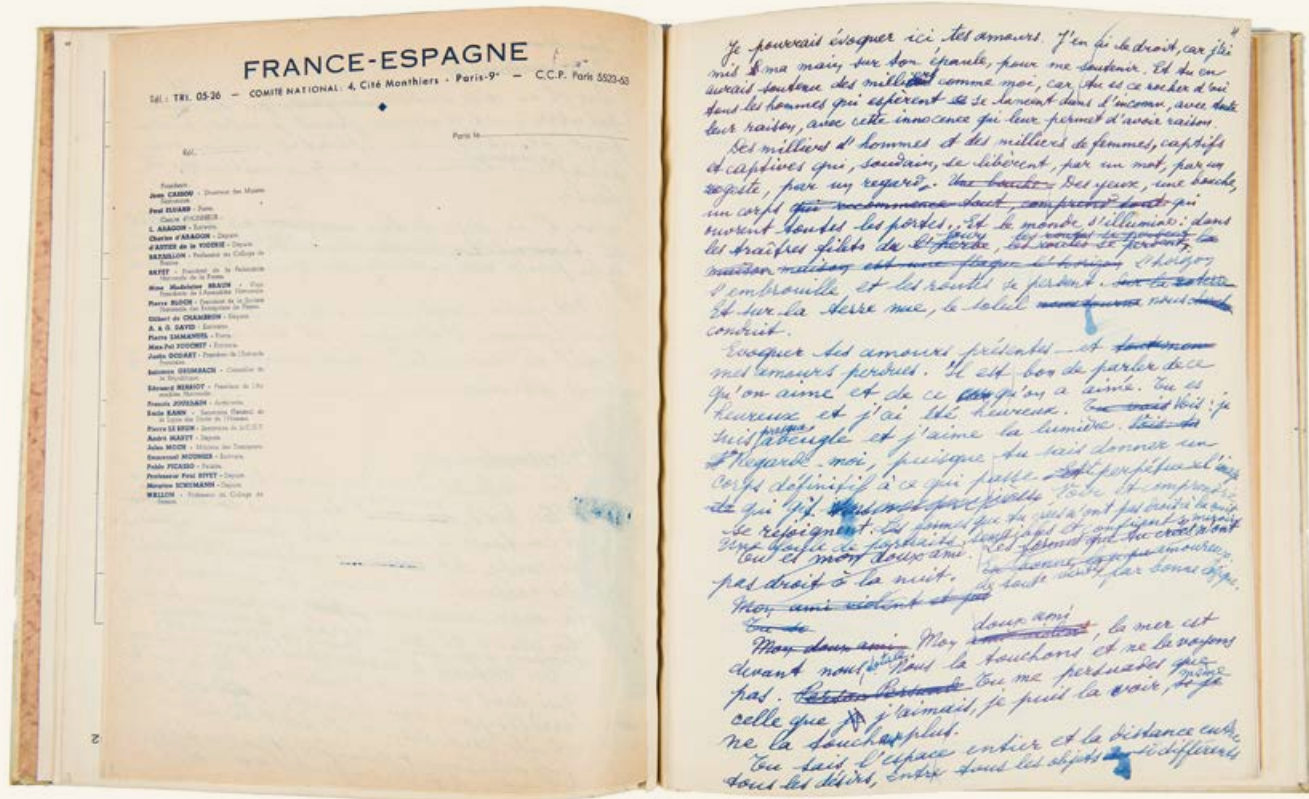 FRANCE-ESPAGNE
Tél. : TRI. 05-26 — COMITÉ NATIONAL : 4, Cité Monthiers - Paris-9e — C.C.P. Paris 5523-53
Paris le
Réf.
Présidents :
Jean CASSOU - Directeur des Musées
Paul ELUARD - Poète.
Comité d'HONNEUR :
L. ARAGON - Écrivain.
Charles d'ARAGON - Député.
d'ASTIER de la VIGERIE - Député.
BATAILLON - Professeur au Collège de
France.
BAYET - Président de la Fédération
Nationale de la Presse.
Mme Madeleine BRAUN - Vice-
Présidente de l'Assemblée Nationale.
Pierre BLOCH - Président de la Société
Nationale des Entreprises de Presse.
Gilbert de CHAMBRUN - Député.
A. & G. DAVID - Écrivains.
Pierre EMMANUEL - Poète.
Max-Pol FOUCHET - Écrivain.
Justin GODART - Président de l'Entraide
Française.
Salomon GRUMBACH - Conseiller de
la République.
Edouard HERRIOT - Président de l'As-
semblée Nationale.
Francis JOURDAIN
Emile KAHN - Secrétaire Général de
la Ligue des Droits de l'Homme.
Pierre LE BRUN - Secrétaire de la C.G.T.
André MARTY - Député.
Jules MOCH - Ministre des Transports.
Emmanuel MOUNIER - Écrivain.
Pablo PICASSO - Peintre.
Professeur Paul RIVET - Député.
Maurice SCHUMANN - Député.
WALLON - Professeur au Collège de
France.
4
Je pourrais évoquer ici tes amours. J'en ai le droit, car j'ai
mis ma main, sur ton épaule, pour me soutenir. Et tu en
aurais soutenu des milliers comme moi, car tu es ce rocher d'où
tous les hommes qui espèrent se lancent dans l'inconnu, avec toute
leur raison, avec cette innocence qui leur permet d'avoir raison.
Des milliers d'hommes et des milliers de femmes, captifs
et captives qui, soudain, se libèrent, par un mot, par un
geste, par un regard. Une bouche Des yeux, une bouche,
un corps qui recommence tout, comprend tout qui
ouvrent toutes les portes. Et le monde s'illumine : dans
les traîtres filets du jour, les routes se perdent, la
maison maison est une flaque l'horizon L'horizon
s'embrouille et les routes se perdent.
Et sur la terre nue, le soleil nous
conduit.
Evoquer tes amours présentes et
mes amours perdues. Il est bon de parler de ce
qu'on aime et de ce qu'on a aimé. Tu es
heureux et j'ai été heureux. Tu vois Vois : je
suis presque aveugle et j'aime la lumière.
Regarde-moi, puisque tu sais donner un
corps définitif à ce qui passe et perpétuel
qui gît. Voir et comprendre
se rejoignent. Les formes que tu crées n'ont pas droit à la nuit
Une foule de portraits
Tu es mon doux ami. Les formes que tu crées n'ont
pas droit à la nuit. En bonne logique amoureux
de toute par bonne
Mon ami violent et
Tu
doux ami
Mon doux ami Mon , la mer est
devant nous, totale. Nous la touchons et ne la voyons
pas. Tu me persuades que
celle que j'aimais, je puis la voir, même si je
ne la touche plus.
Tu sais l'espace entier et la distance entre
tous les désirs, entre tous les objets si différents